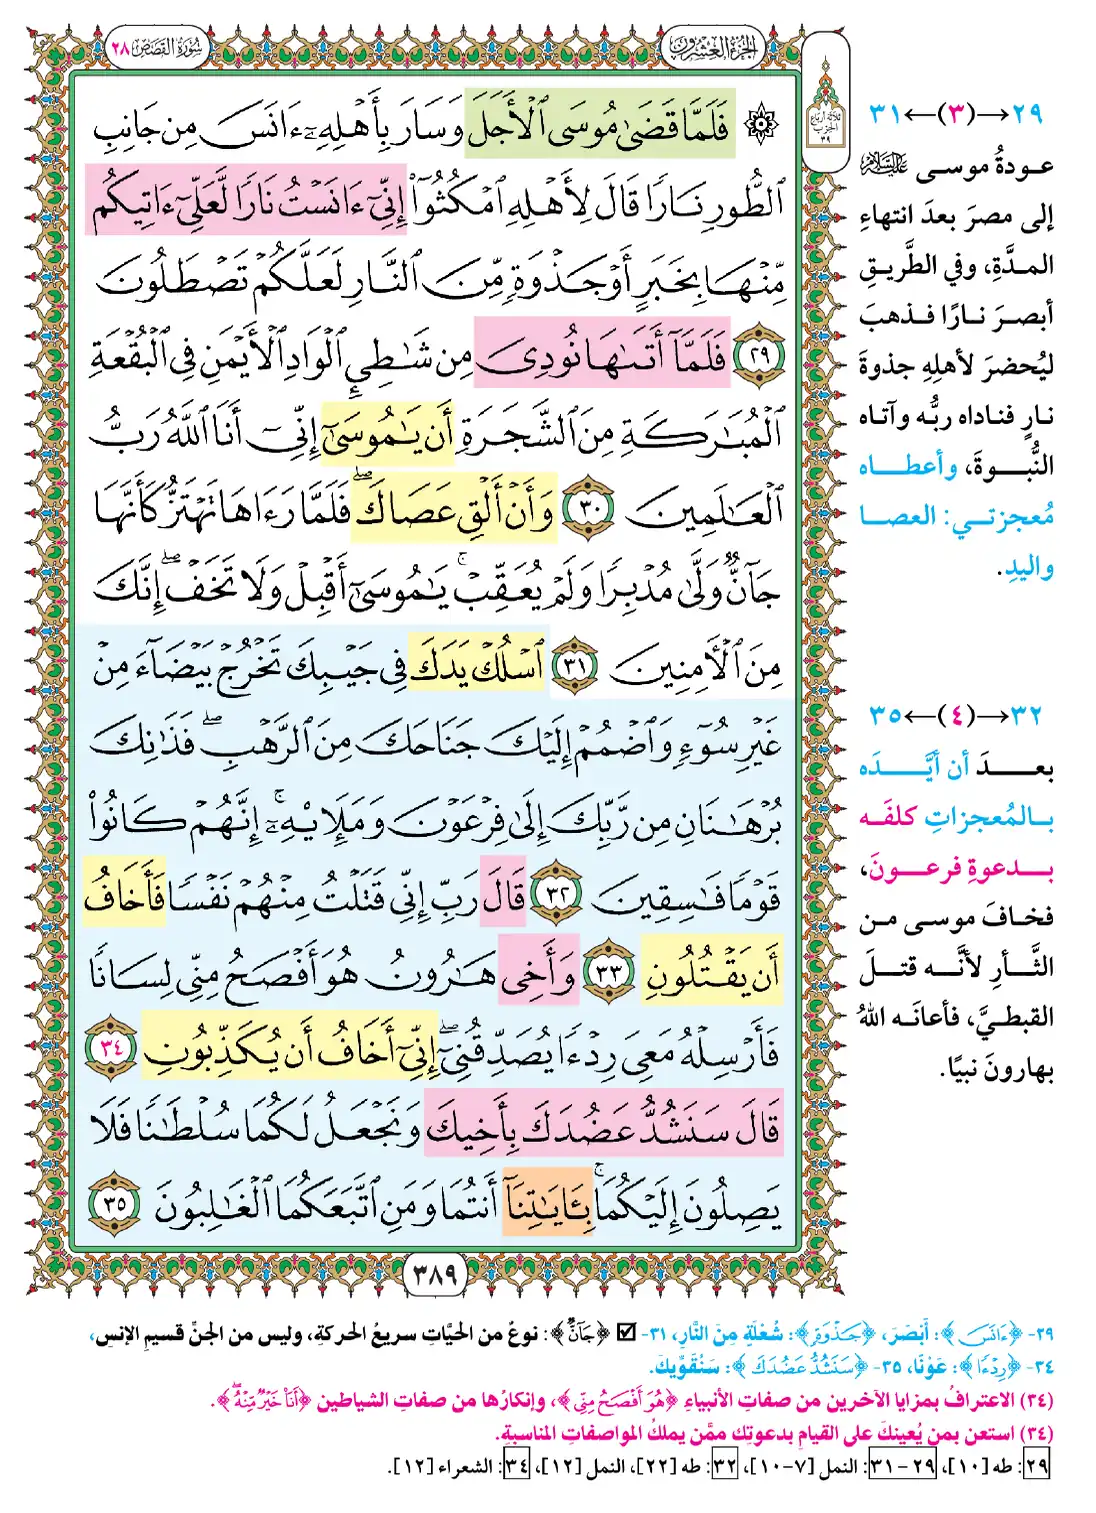 الجزء العشرون
سورة القصص ٢٨
ثلاثة أرباع
الحزب
٣٩
۞ فَلَمَّا قَضَىٰ مُوسَى ٱلْأَجَلَ وَسَارَ بِأَهْلِهِۦٓ ءَانَسَ مِن جَانِبِ
ٱلطُّورِ نَارًا قَالَ لِأَهْلِهِ ٱمْكُثُوٓا۟ إِنِّىٓ ءَانَسْتُ نَارًا لَّعَلِّىٓ ءَاتِيكُم
مِّنْهَا بِخَبَرٍ أَوْ جَذْوَةٍ مِّنَ ٱلنَّارِ لَعَلَّكُمْ تَصْطَلُونَ
٢٩ فَلَمَّآ أَتَىٰهَا نُودِىَ مِن شَـٰطِئِ ٱلْوَادِ ٱلْأَيْمَنِ فِى ٱلْبُقْعَةِ
ٱلْمُبَـٰرَكَةِ مِنَ ٱلشَّجَرَةِ أَن يَـٰمُوسَىٰٓ إِنِّىٓ أَنَا ٱللَّهُ رَبُّ
ٱلْعَـٰلَمِينَ ٣٠ وَأَنْ أَلْقِ عَصَاكَ ۖ فَلَمَّا رَءَاهَا تَهْتَزُّ كَأَنَّهَا
جَآنٌّ وَلَّىٰ مُدْبِرًا وَلَمْ يُعَقِّبْ ۚ يَـٰمُوسَىٰٓ أَقْبِلْ وَلَا تَخَفْ ۖ إِنَّكَ
مِنَ ٱلْـَٔامِنِينَ ٣١ ٱسْلُكْ يَدَكَ فِى جَيْبِكَ تَخْرُجْ بَيْضَآءَ مِنْ
غَيْرِ سُوٓءٍ وَٱضْمُمْ إِلَيْكَ جَنَاحَكَ مِنَ ٱلرَّهْبِ ۖ فَذَٰنِكَ
بُرْهَـٰنَانِ مِن رَّبِّكَ إِلَىٰ فِرْعَوْنَ وَمَلَإِي۟هِۦٓ ۚ إِنَّهُمْ كَانُوا۟
قَوْمًا فَـٰسِقِينَ ٣٢ قَالَ رَبِّ إِنِّى قَتَلْتُ مِنْهُمْ نَفْسًا فَأَخَافُ
أَن يَقْتُلُونِ ٣٣ وَأَخِى هَـٰرُونُ هُوَ أَفْصَحُ مِنِّى لِسَانًا
فَأَرْسِلْهُ مَعِىَ رِدْءًا يُصَدِّقُنِىٓ ۖ إِنِّىٓ أَخَافُ أَن يُكَذِّبُونِ ٣٤
قَالَ سَنَشُدُّ عَضُدَكَ بِأَخِيكَ وَنَجْعَلُ لَكُمَا سُلْطَـٰنًا فَلَا
يَصِلُونَ إِلَيْكُمَا ۚ بِـَٔايَـٰتِنَآ أَنتُمَا وَمَنِ ٱتَّبَعَكُمَا ٱلْغَـٰلِبُونَ ٣٥
٣٨٩
٢٩→(٣)←٣١
عودةُ موسى عليه السلام
إلى مصرَ بعدَ انتهاءِ
المدَّةِ، وفي الطَّريقِ
أبصرَ نارًا فذهبَ
ليُحضرَ لأهلِهِ جذوةَ
نارٍ فناداه ربُّه وآتاه
النُّبوةَ، وأعطاه
مُعجزتي: العصا
واليدِ.
٣٢→(٤)←٣٥
بعدَ أن أيَّدَه
بالمُعجزاتِ كلفَه
بدعوةِ فرعونَ،
فخافَ موسى من
الثَّأرِ لأنَّه قتلَ
القبطيَّ، فأعانَه اللهُ
بهارونَ نبيًا.
٢٩- ﴿ءَانَسَ﴾: أَبْصَرَ، ﴿جَذْوَةٍ﴾: شُعْلَةٍ مِنَ النَّارِ، ٣١- ☑ ﴿جَآنٌّ﴾: نوعٌ من الحيَّاتِ سريعُ الحركةِ، وليس من الجنِّ قسيمِ الإنسِ،
٣٤- ﴿رِدْءًا﴾: عَوْنًا، ٣٥- ﴿سَنَشُدُّ عَضُدَكَ﴾: سَنُقَوِّيكَ.
(٣٤) الاعترافُ بمزايا الآخرين من صفاتِ الأنبياءِ ﴿هُوَ أَفْصَحُ مِنِّى﴾، وإنكارُها من صفاتِ الشياطين ﴿أَنَا۠ خَيْرٌ مِّنْهُ﴾.
(٣٤) استعن بمن يُعينكَ على القيامِ بدعوتِك ممَّن يملكُ المواصفاتِ المناسبةِ.
٢٩: طه [١٠]، ٢٩-٣١: النمل [٧-١٠]، ٣٢: طه [٢٢]، النمل [١٢]، ٣٤: الشعراء [١٢].